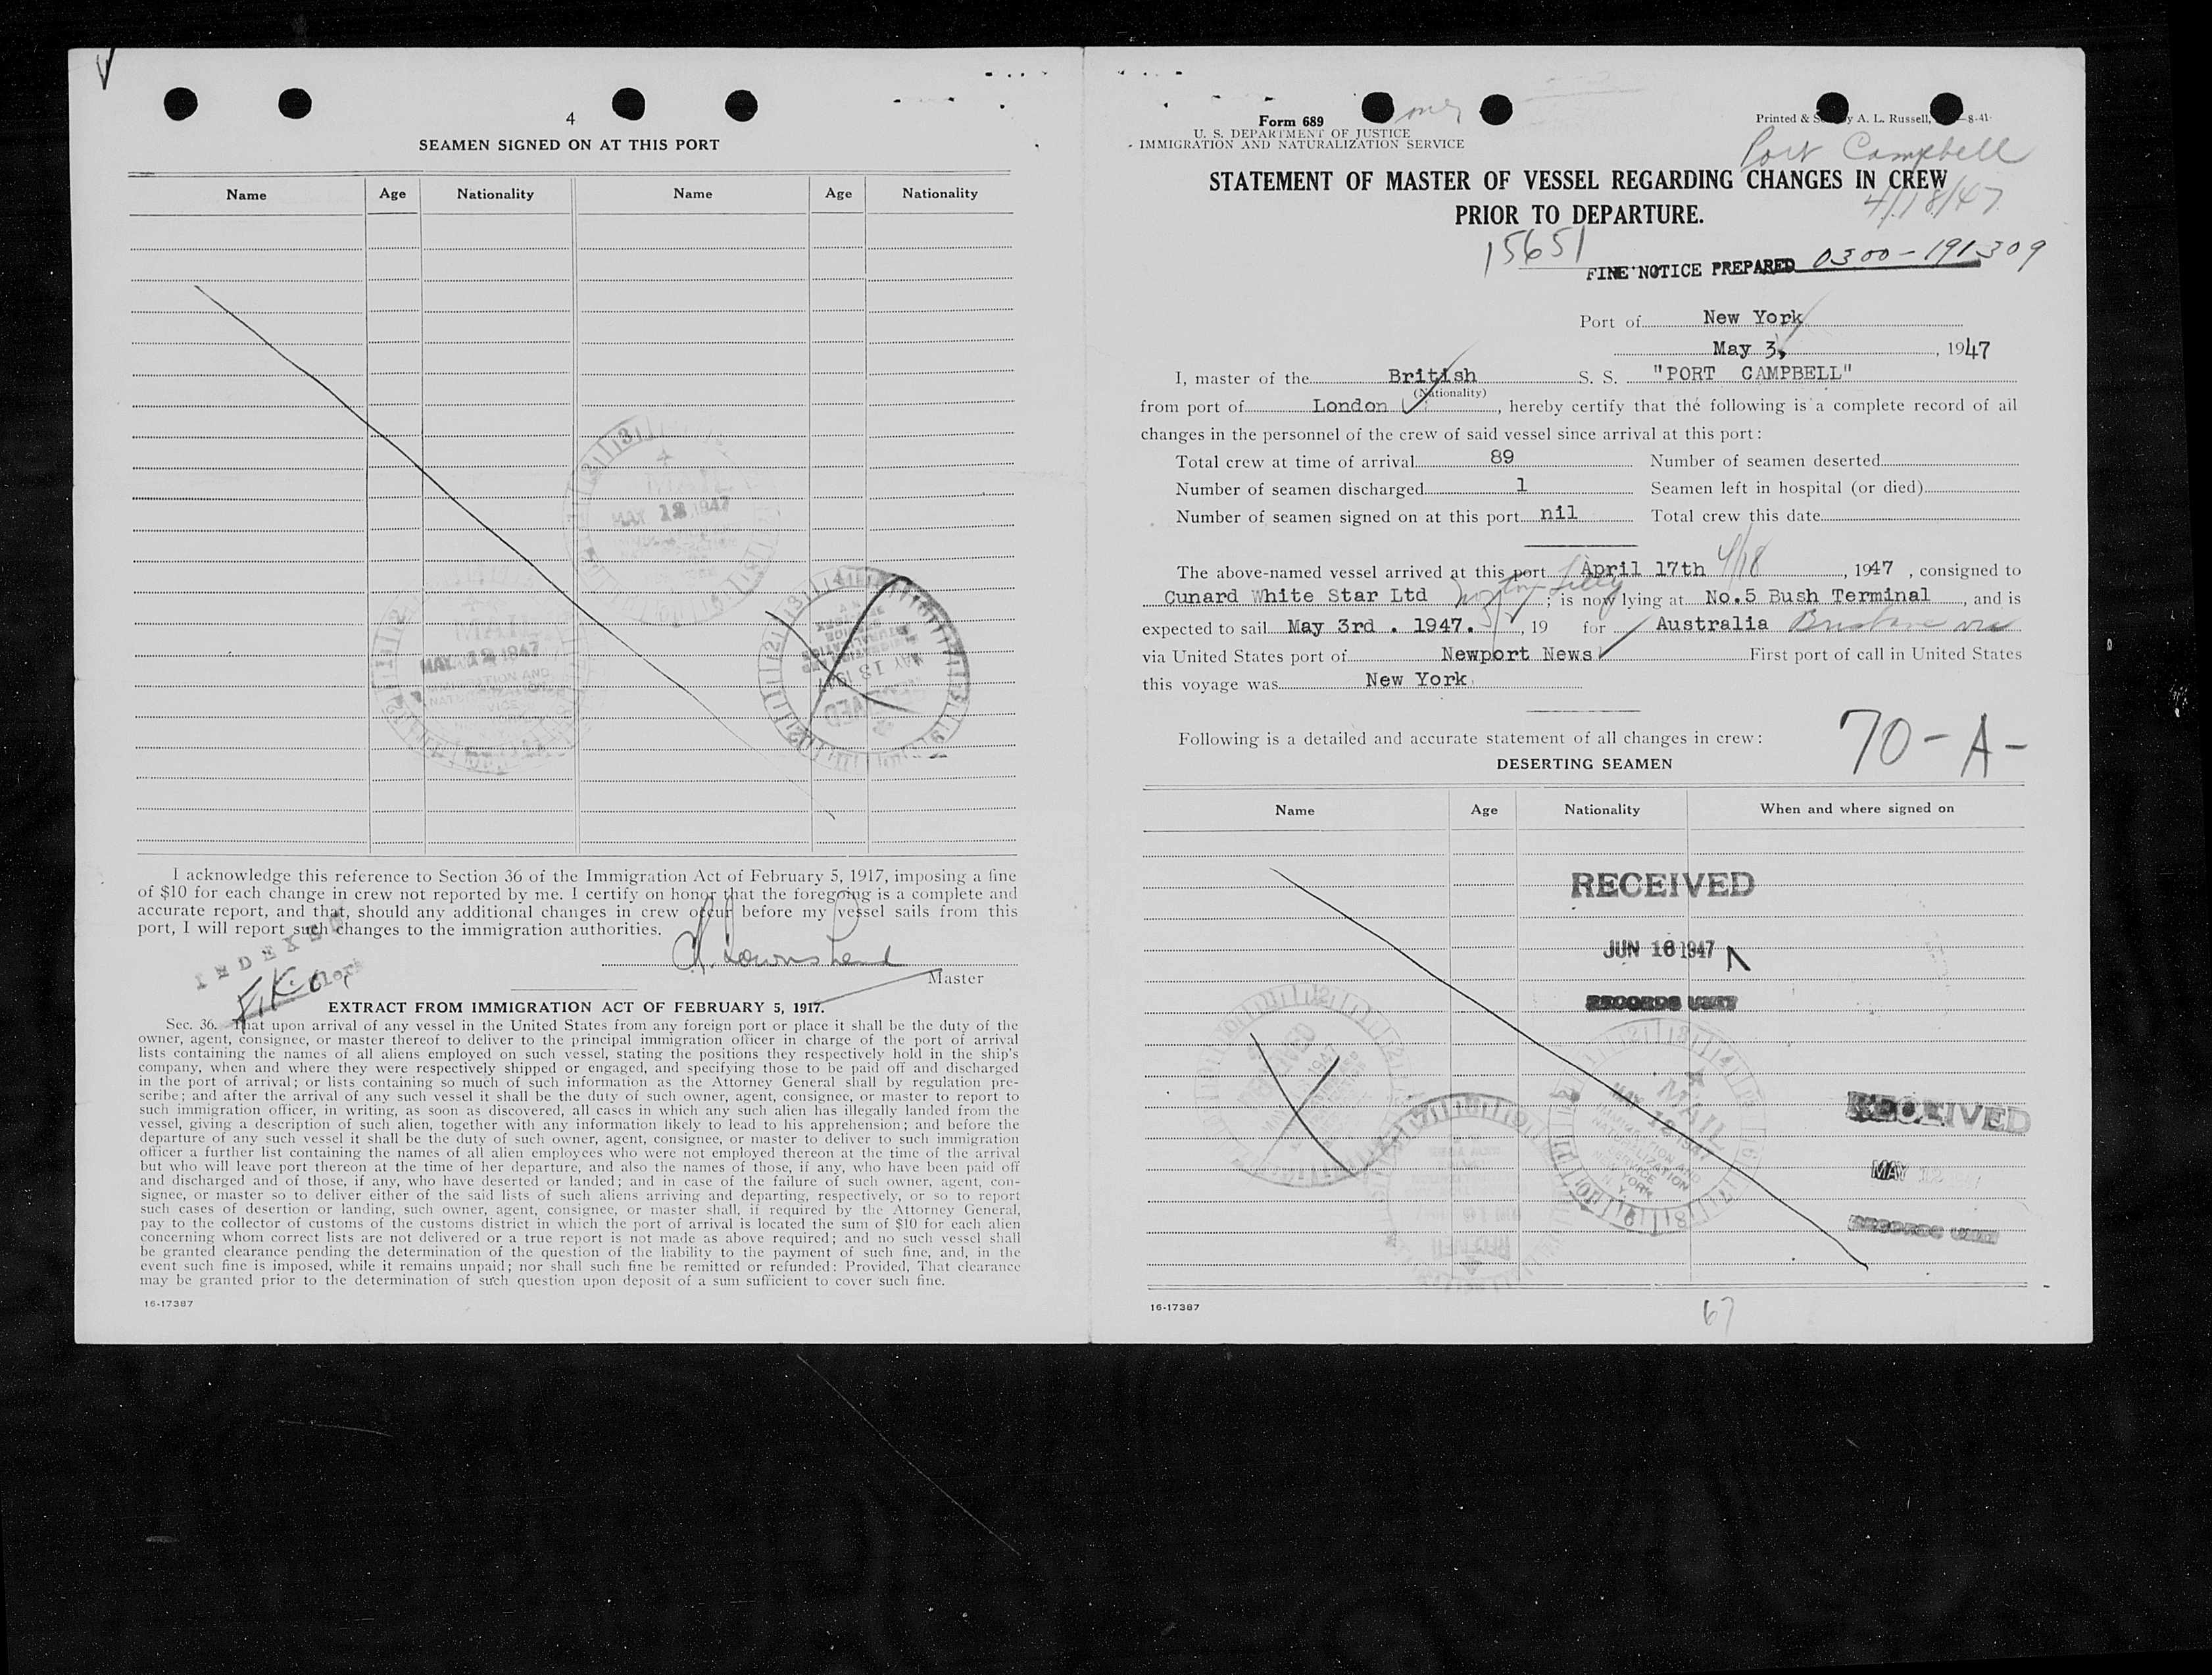 4
SEAMEN SIGNED ON AT THIS PORT
Name Age Nationality Name Age Nationality
MAY 12 1947
MAIL
MAY 12 1947
MAY 13 1947
I acknowledge this reference to Section 36 of the Immigration Act of February 5, 1917, imposing a fine
of $10 for each change in crew not reported by me. I certify on honor that the foregoing is a complete and
accurate report, and that, should any additional changes in crew occur before my vessel sails from this
port, I will report such changes to the immigration authorities.
INDEXED
Master
EXTRACT FROM IMMIGRATION ACT OF FEBRUARY 5, 1917.
Sec. 36. That upon arrival of any vessel in the United States from any foreign port or place it shall be the duty of the
owner, agent, consignee, or master thereof to deliver to the principal immigration officer in charge of the port of arrival
lists containing the names of all aliens employed on such vessel, stating the positions they respectively hold in the ship's
company, when and where they were respectively shipped or engaged, and specifying those to be paid off and discharged
in the port of arrival; or lists containing so much of such information as the Attorney General shall by regulation pre-
scribe; and after the arrival of any such vessel it shall be the duty of such owner, agent, consignee, or master to report to
such immigration officer, in writing, as soon as discovered, all cases in which any such alien has illegally landed from the
vessel, giving a description of such alien, together with any information likely to lead to his apprehension; and before the
departure of any such vessel it shall be the duty of such owner, agent, consignee, or master to deliver to such immigration
officer a further list containing the names of all alien employees who were not employed thereon at the time of the arrival
but who will leave port thereon at the time of her departure, and also the names of those, if any, who have been paid off
and discharged and of those, if any, who have deserted or landed; and in case of the failure of such owner, agent, con-
signee, or master so to deliver either of the said lists of such aliens arriving and departing, respectively, or so to report
such cases of desertion or landing, such owner, agent, consignee, or master shall, if required by the Attorney General,
pay to the collector of customs of the customs district in which the port of arrival is located the sum of $10 for each alien
concerning whom correct lists are not delivered or a true report is not made as above required; and no such vessel shall
be granted clearance pending the determination of the question of the liability to the payment of such fine, and, in the
event such fine is imposed, while it remains unpaid; nor shall such fine be remitted or refunded: Provided, That clearance
may be granted prior to the determination of such question upon deposit of a sum sufficient to cover such fine.
16-17387
Form 689
U. S. DEPARTMENT OF JUSTICE
IMMIGRATION AND NATURALIZATION SERVICE
Printed & A. L. Russell, 8-41
Port Campbell
STATEMENT OF MASTER OF VESSEL REGARDING CHANGES IN CREW
PRIOR TO DEPARTURE.
4/18/47
15651
FINE NOTICE PREPARED 0300-191309
Port of New York
May 3, 1947
I, master of the British S. S. "PORT CAMPBELL"
(Nationality)
from port of London, hereby certify that the following is a complete record of all
changes in the personnel of the crew of said vessel since arrival at this port:
Total crew at time of arrival 89 Number of seamen deserted
Number of seamen discharged 1 Seamen left in hospital (or died)
Number of seamen signed on at this port nil Total crew this date
The above-named vessel arrived at this port April 17th 4/18, 1947, consigned to
Cunard White Star Ltd Norton Lilly; is now lying at No.5 Bush Terminal, and is
expected to sail May 3rd . 1947., 19 for Australia Brisbane via
via United States port of Newport News First port of call in United States
this voyage was New York
Following is a detailed and accurate statement of all changes in crew:
70-A-
DESERTING SEAMEN
Name Age Nationality When and where signed on
RECEIVED
JUN 16 1947
RECORDS UNIT
MAIL
IMMIGRATION AND
NATURALIZATION
SERVICE
NEW YORK
N. Y.
RECEIVED
MAY 12 1947
RECORDS UNIT
67
16-17387